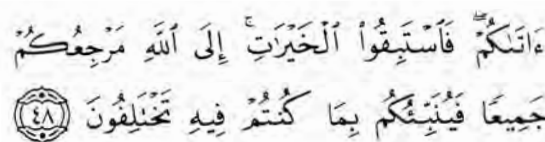 ءَاتَىٰكُمْ ۖ فَٱسْتَبِقُوا۟ ٱلْخَيْرَٰتِ ۚ إِلَى ٱللَّهِ مَرْجِعُكُمْ
جَمِيعًا فَيُنَبِّئُكُم بِمَا كُنتُمْ فِيهِ تَخْتَلِفُونَ ٤٨